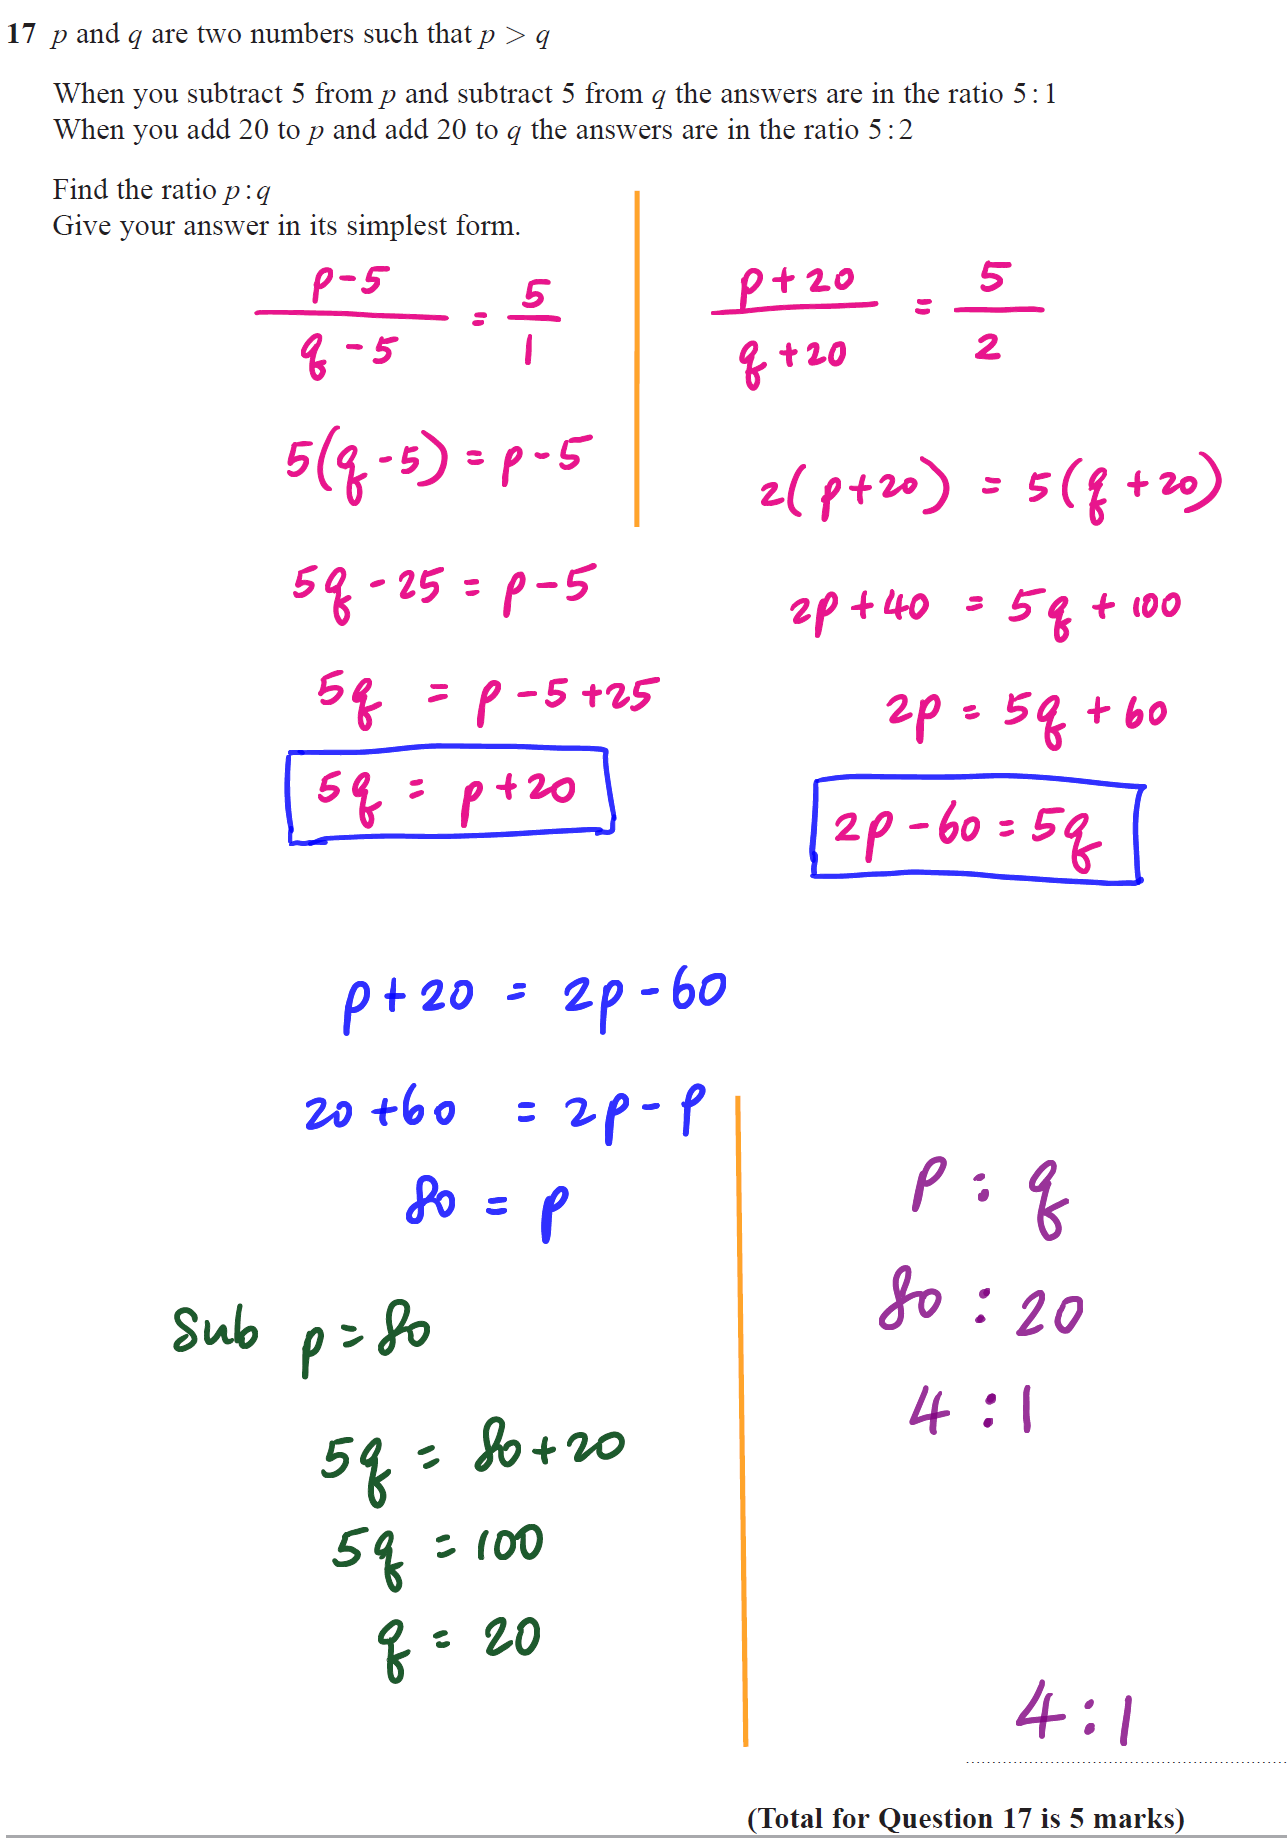 17 p and q are two numbers such that p > q
When you subtract 5 from p and subtract 5 from q the answers are in the ratio 5 : 1
When you add 20 to p and add 20 to q the answers are in the ratio 5 : 2
Find the ratio p : q
Give your answer in its simplest form.
p - 5
q - 5
= 5
1
5(q - 5) = p - 5
5q - 25 = p - 5
5q = p - 5 + 25
5q = p + 20
p + 20
q + 20
= 5
2
2(p + 20) = 5(q + 20)
2p + 40 = 5q + 100
2p = 5q + 60
2p - 60 = 5q
p + 20 = 2p - 60
20 + 60 = 2p - p
80 = p
Sub p = 80
5q = 80 + 20
5q = 100
q = 20
p : q
80 : 20
4 : 1
4 : 1
(Total for Question 17 is 5 marks)